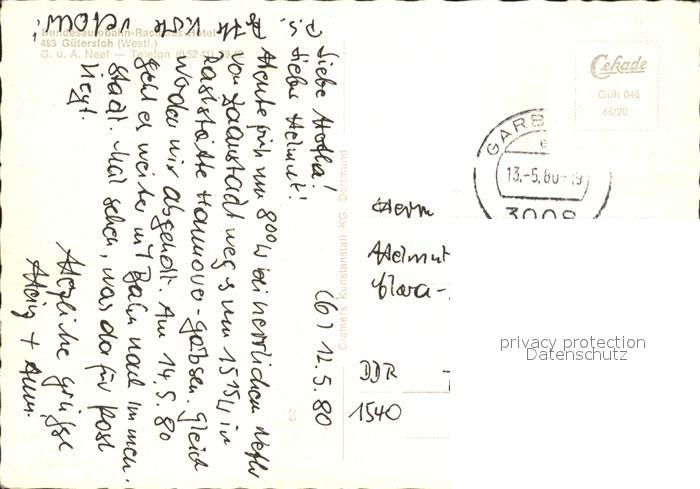 Bundesautobahn-Rasthaus-Hotel
483 Gütersloh (Westf.)
G. u. A. Neef — Telefon (05241)
P.S.
(6) 12.5.80
Liebe Martha!
Lieber Helmut!
Heute früh um 800 bei herrlichem
von weg + um 1515 in
Raststätte Hannover-Garbsen. Gleich
werden wir abgeholt. Am 14.5.80
geht es weiter mit Bahn nach
stadt. Mal sehen, was da für Post
liegt.
Herzliche Grüsse
Heinz +
Cramers Kunstanstalt KG, Dortmund
Cekade
Güh 046
66/20
GARB
13.-5.80-19
3008
Herrn
Helmut
Clara-
DDR
1540
privacy protection
Datenschutz